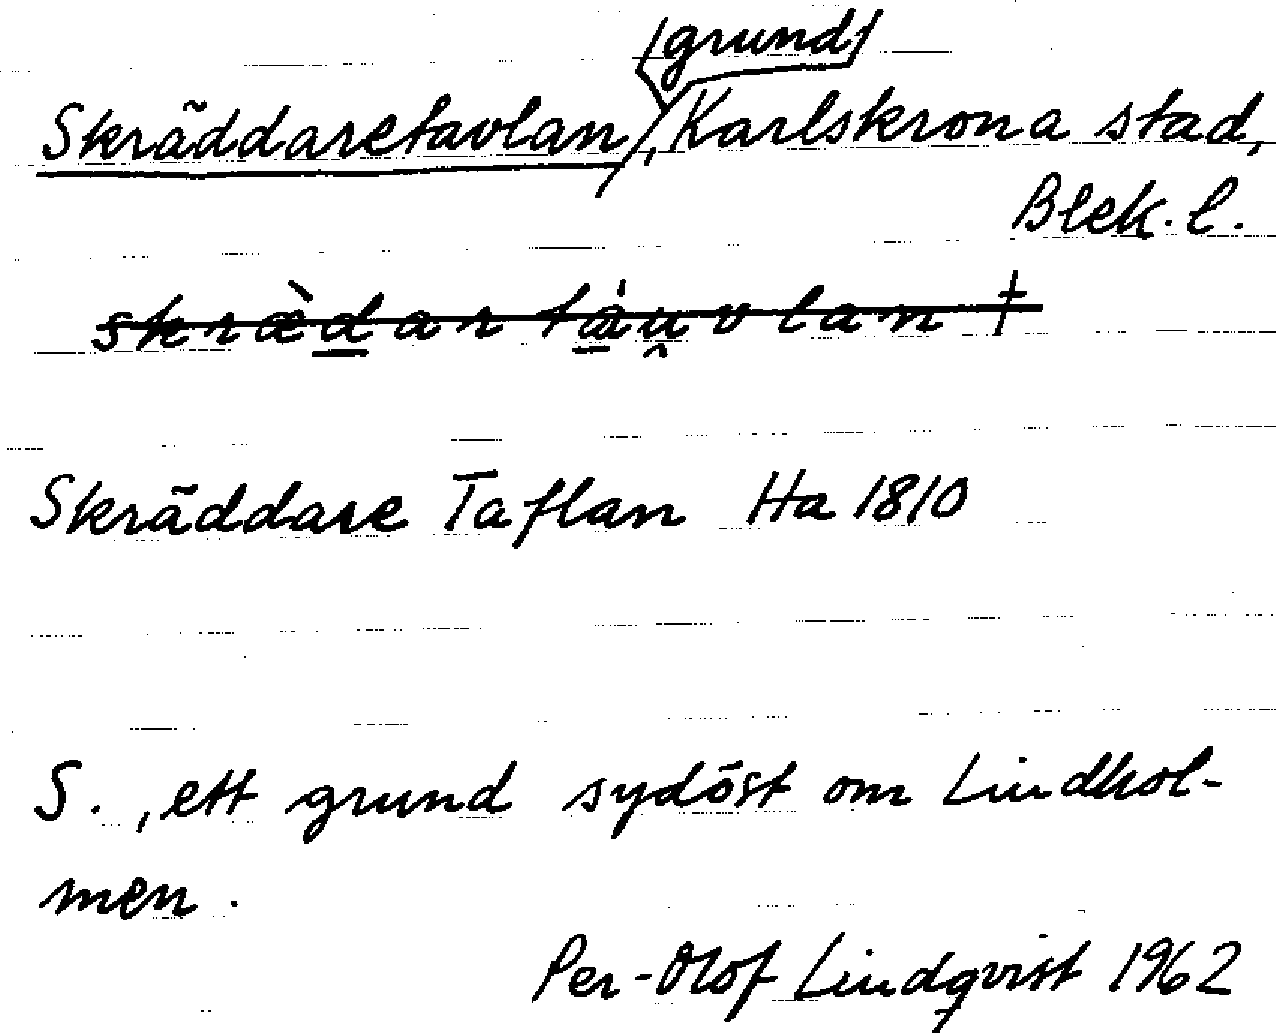 (grund)
Skräddaretavlan, Karlskrona stad,
Blek. l.
Skräddare Taflan Ha 1810
S., ett grund sydöst om Lindhol-
men.
Per-Olof Lindqvist 1962